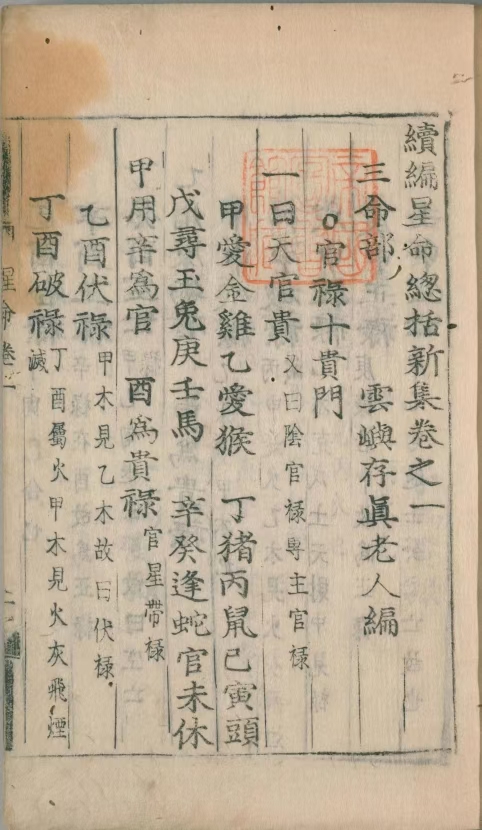 續編星命總括新集卷之一
三命部 雲嶼存眞老人編
○官祿十貴門
一曰天官貴 又曰陰官祿專主官祿
甲愛金雞乙愛猴 丁猪丙鼠己寅頭
戊尋玉兎庚壬馬 辛癸逢蛇官未休
甲用辛爲官 酉爲貴祿 官星帶祿
乙酉伏祿 甲木見乙木故曰伏祿
丁酉破祿 丁酉屬火甲木見火灰飛煙
滅
星命卷一